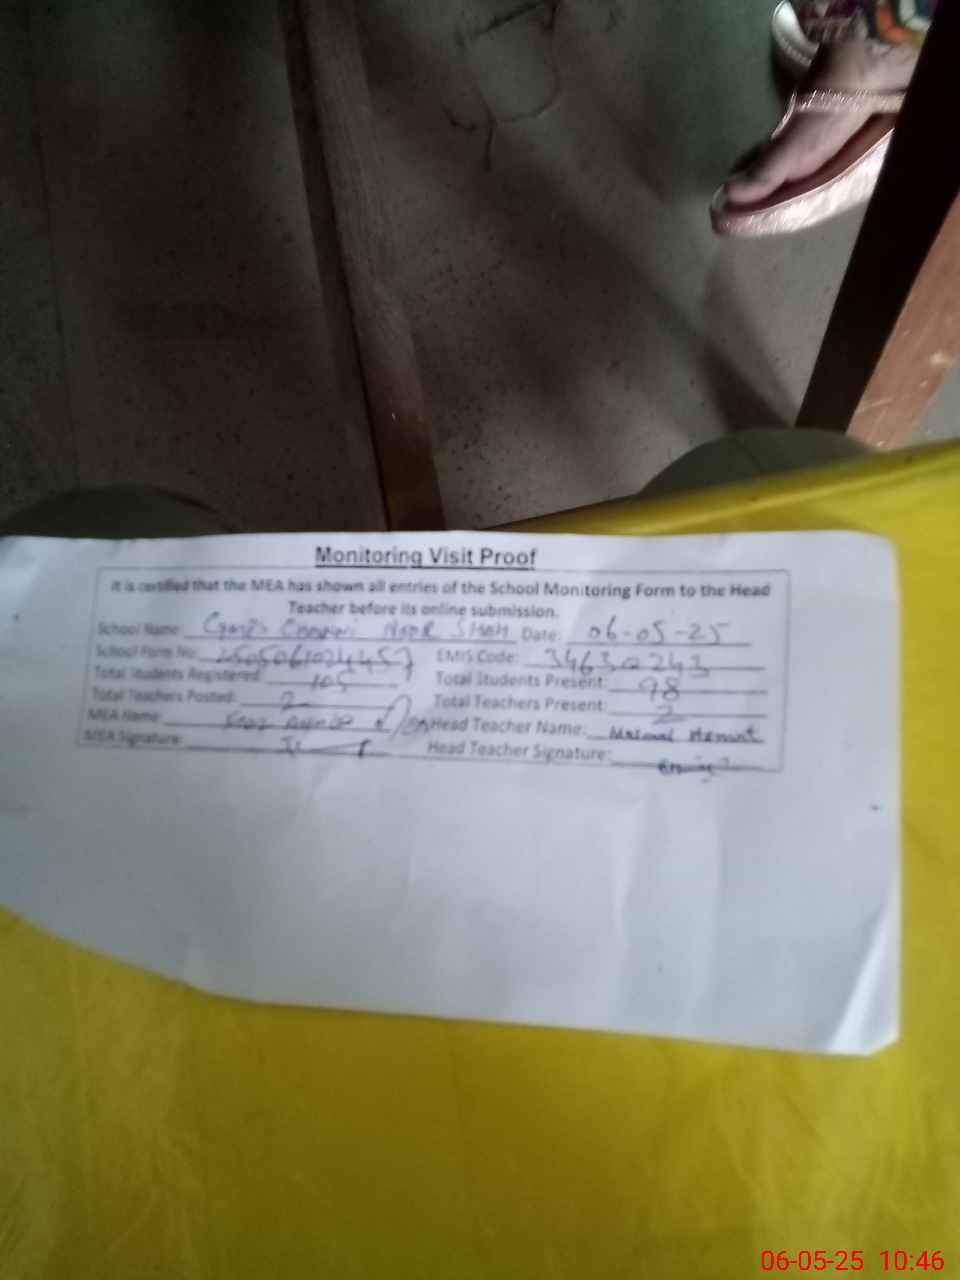 Monitoring Visit Proof
It is certified that the MEA has shown all entries of the School Monitoring Form to the Head
Teacher before its online submission.
School Name: NOOR SHAH Date: 06-05-25
School Form No: EMIS Code: 34630243
Total Students Registered: 105 Total Students Present: 98
Total Teachers Posted: 2 Total Teachers Present: 2
MEA Name: Head Teacher Name:
MEA Signature: Head Teacher Signature:
06-05-25 10:46